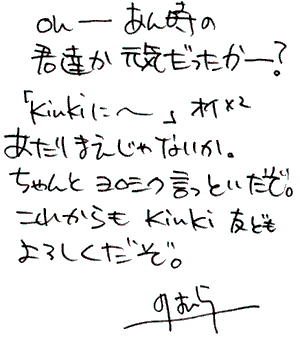 oh — あん時の
君達か 元気だったかー?
「Kinkiに〜」オイ×2
あたりまえじゃないか。
ちゃんと ヨロシク言っといたぞ。
これからも Kinki 友ども
よろしくだぞ。
のむら